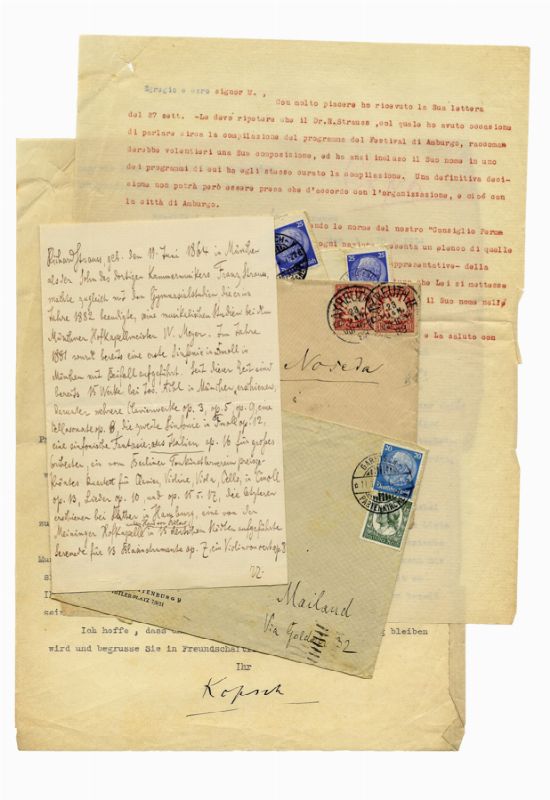 Egregio e caro signor M. ,
Con molto piacere ho ricevuto la Sua lettera
del 27 sett. -Le devo ripetere che il Dr.R.Strauss ,col quale ho avuto occasione
di parlare circa la compilazione del programma del Festival di Amburgo, raccoman
derebbe volentieri una Sua composizione, ed ha anzi incluso il Suo nome in uno
dei programmi di cui ha egli stesso curato la compilazione. Una definitiva deci-
sione non potrà però essere presa che d'accordo con l'organizzazione, e cioé con
la città di Amburgo.
endo le norme del nostro "Consiglio Perma
ogni nazione presenta un elenco di quelle
appresentative- della
che Lei si mettesse
il Suo nome nell
e La saluto con
Richard Strauss, geb. den 11. Juni 1864 in München
als der Sohn des dortigen Kammermusikers Franz Strauss,
machte zugleich mit den Gymnasialstudien, die er im
Jahre 1882 beendigte, seine musikalischen Studien bei dem
Münchner Hofkapellmeister W. Meyer. Im Jahre
1881 wurde bereits eine erste Sinfonie in Dmoll in
München mit Beifall aufgeführt. Seit dieser Zeit sind
bereits 15 Werke bei Jos. Aibl in München erschienen,
darunter mehrere Clavierwerke op. 3, op. 5, op. 9, eine
Cellosonate op. 6, die zweite Sinfonie in Fmoll op. 12,
eine sinfonische Fantasie: aus Italien op. 16 für großes
Orchester, ein vom Berliner Tonkünstlerverein preisge-
kröntes Quartett für Clavier, Violine, Viola, Cello, in Cmoll
op. 13, Lieder op. 10, und op. 15 u. 17, die letzteren
erschienen bei Rahter in Hamburg, eine von der
Meininger Hofkapelle in 15 deutschen Städten aufgeführte
Serenade für 13 Blasinstrumente op. 7, ein Violinconcert op. 8
25
25
BAYREUTH
Noseda
20
20
GARMISCH
PARTENKIRCHEN
Mailand
Via Goldoni 32
Ich hoffe, dass
bleiben
wird und begrusse Sie in Freundschaft
Ihr
Kopsch